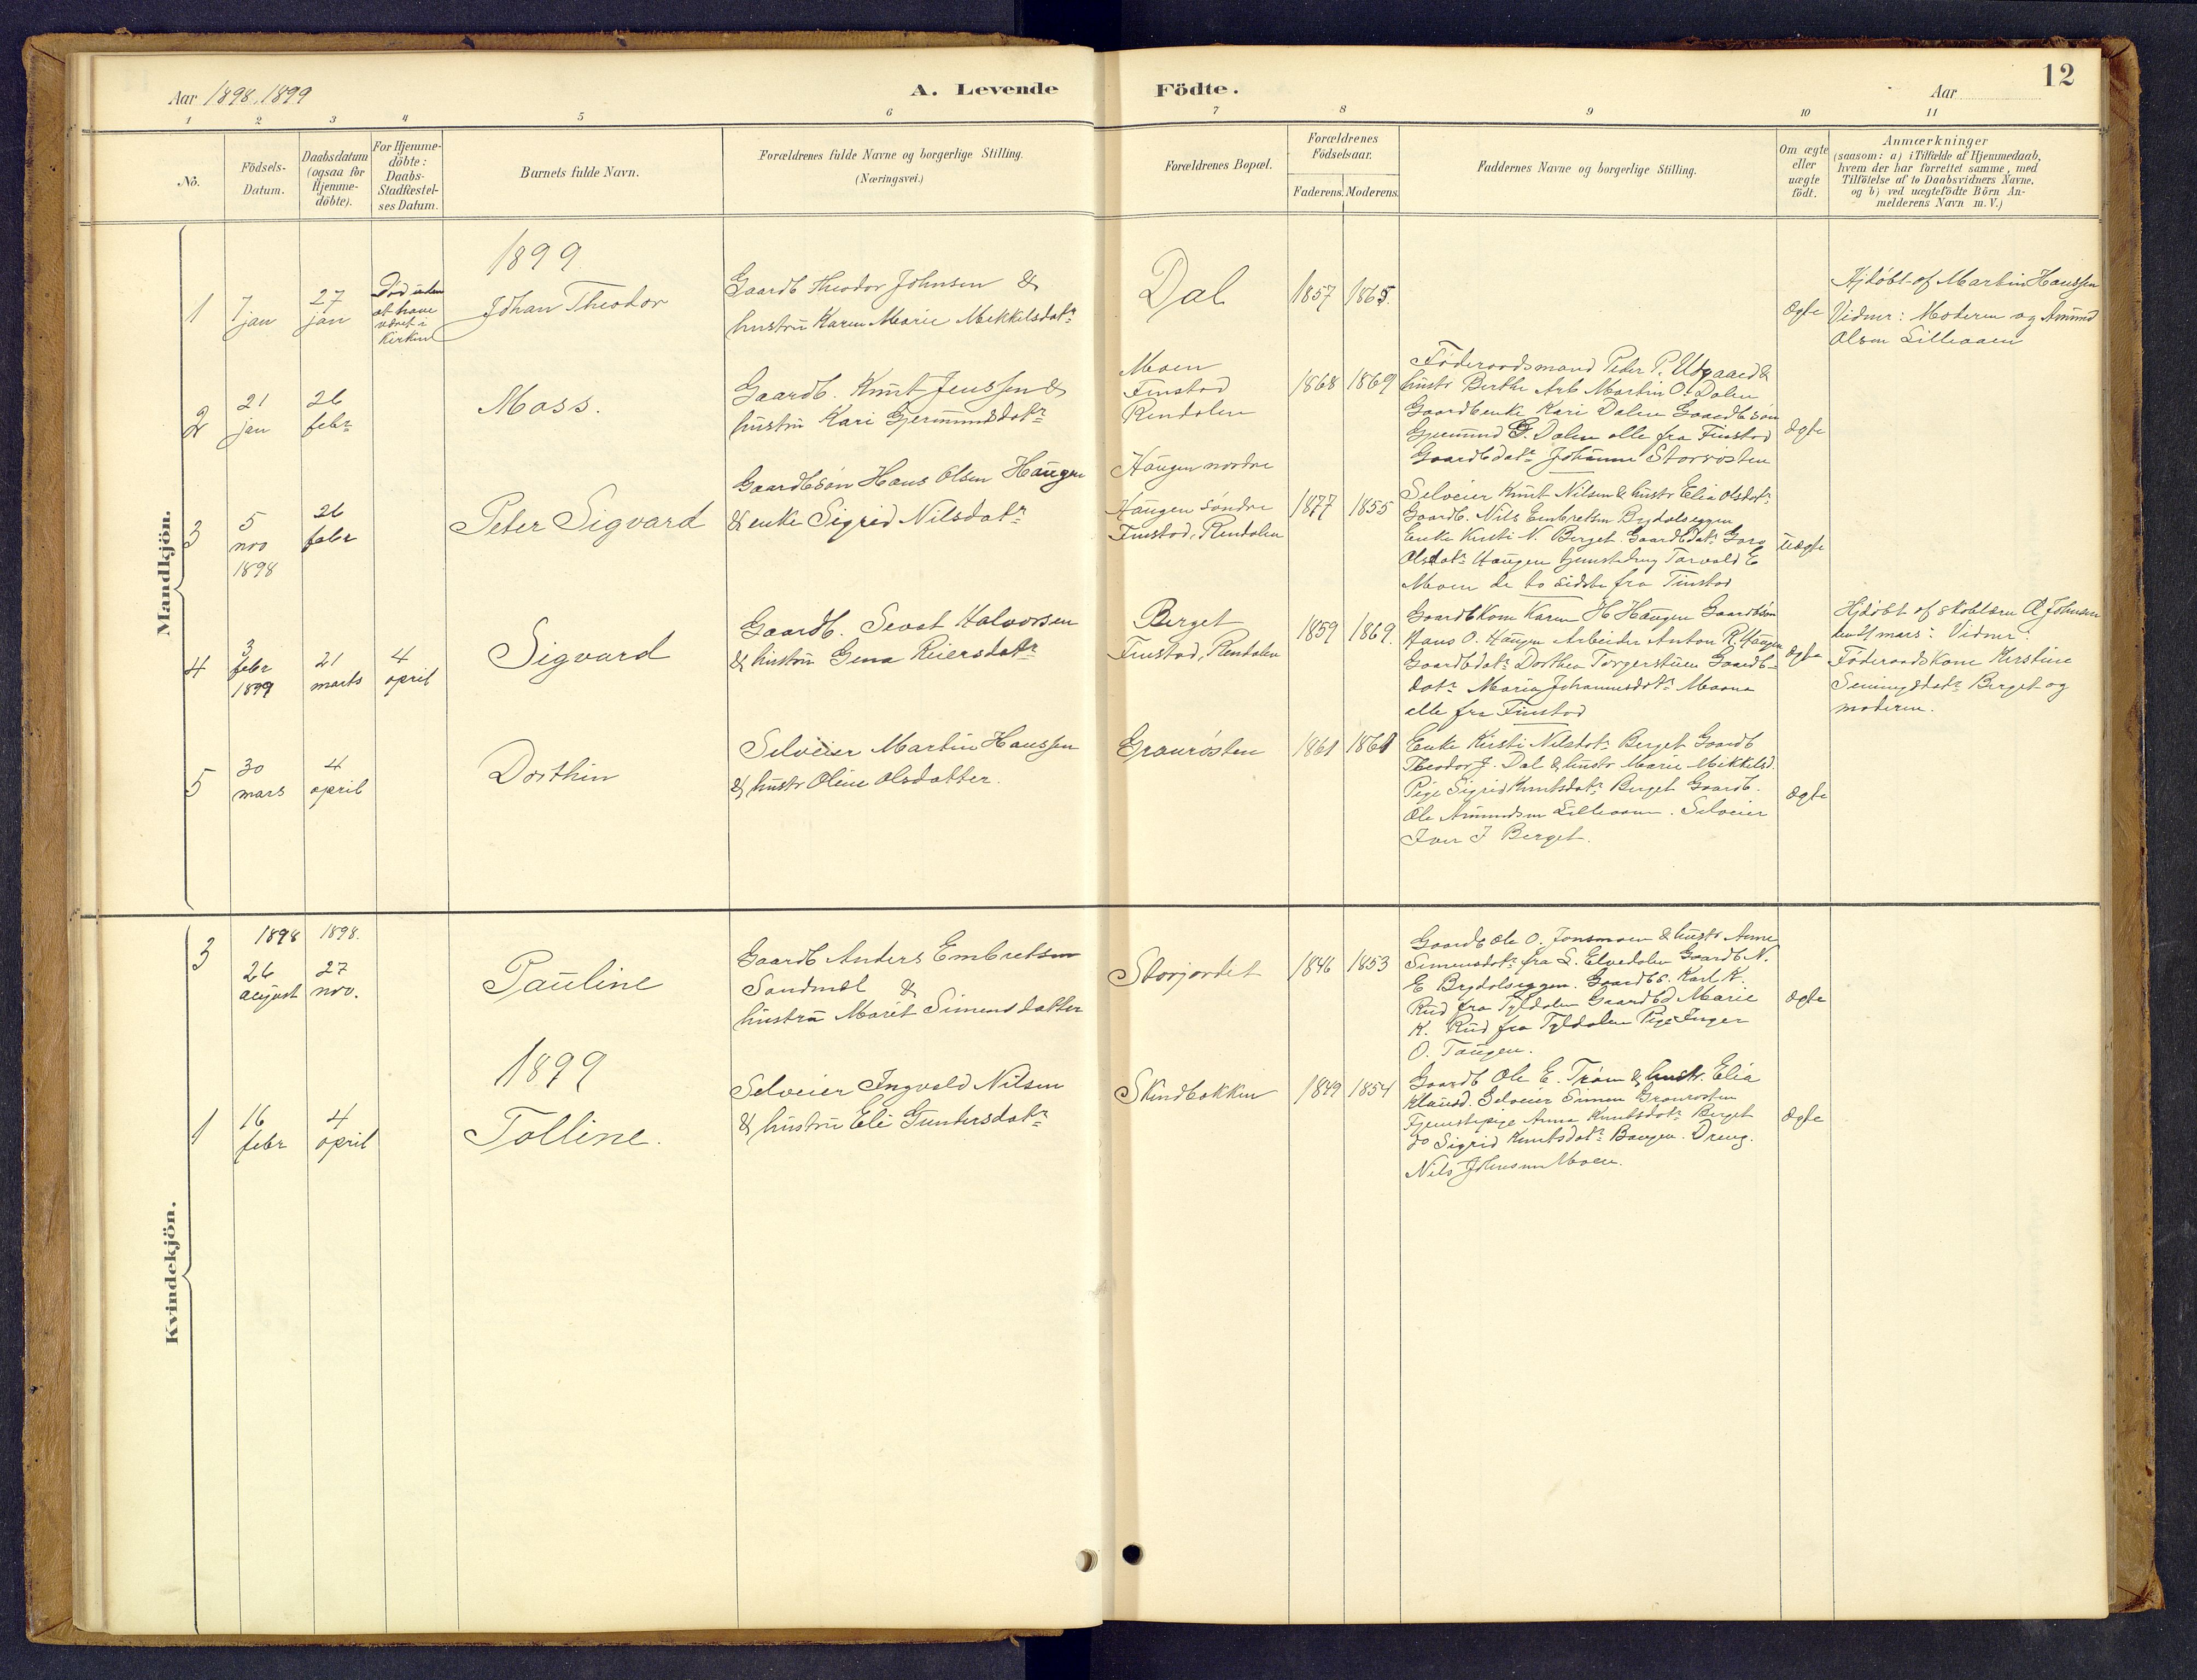 Aar 1898, 1899
A. Levende
Födte.
Aar
12
1 2 3 4 5 6 7 8 9 10 11
No.
Födsels-
Datum.
Daabsdatum
(ogsaa for
Hjemme-
döbte).
For Hjemme-
döbte:
Daabs-
Stadfæstel-
ses Datum.
Barnets fulde Navn.
Forældrenes fulde Navne og borgerlige Stilling.
(Næringsvei.)
Forældrenes Bopæl.
Forældrenes
Födselsaar.
Faderens. Moderens.
Faddernes Navne og borgerlige Stilling.
Om ægte
eller
uægte
födt.
Anmærkninger
(saasom: a) i Tilfælde af Hjemmedaab,
hvem der har forrettet samme, med
Tilföielse af to Daabsvidners Navne,
og b) ved uægtefödte Börn An-
melderens Navn m. V.)
Mandkjön.
1899
1
7
jan
27
jan
Død uden
at have
været i
Kirken
Johan Theodor
Gaardb Theodor Johnsen &
hustru Karen Marie Mekkelsdatr
Dal
1857
1865.
Ægte
Hjdøbt af Martin Hanssen
Vidner: Moderen og Amund
Olsen Lilleaaen
2
21
jan
26
febr
Mass.
Gaardb. Knut Jenssen &
hustru Kari Gjermundsdatr
Moen
Finstad
Rendalen
1868
1869
Føderaadsmand Peder P. Utgaard &
hustr Berthe Arb Martin O. Dalen
Gaardbenke Kari Dalen Gaardbsøn
Gjermund G. Dalen alle fra Finstad
Gaardbdatr Johanne Storrøsten
Ægte
3
5
nov
1898
26
febr
Peter Sigvard
Gaardbsøn Hans Olsen Haugen
& enke Sigrid Nilsdatr
Haugen nordre
Haugen søndre
Finstad, Rendalen
1877
1855
Selveier Knut Nilsen & hustr Elia Olsdatr
Gaardb. Nils Embretsen Brydalseggen
Enke Kirsti N. Berget. Gaardbdatr Goro
Olsdatr Haugen Tjenestedreng Torvald E
Moen de to sidste fra Finstad
Uægte
4
3
febr
1899
21
marts
4
april
Sigvard
Gaardb. Sevat Halvorsen
& hustru Gena Reiersdatr
Berget
Finstad, Rendalen
1859
1869.
Gaardbkone Karen H Haugen Gaardbsøn
Hans O. Haugen Arbeider Anton R. Haugen
Gaardbdatr Dorthea Torgerstuen Gaardb-
datr Maria Johannesdatr Moana
alle fra Finstad
Ægte
Hjdøbt af skolelærer Johnsen
den 21 mars: Vidner:
Føderaadskone Kirstine
Semmingsdatr Berget og
moderen.
5
30
mars
4
april
Dorthin
Selveier Martin Hanssen
& hustr Oline Olsdatter.
Granrøsten
1861
1861
Enke Kirsti Nilsdatr Berget Gaardb
Theodor J. Dal & hustr Marie Mikkelsd.
Pige Sigrid Knutsdatr Berget Gaardb.
Ole Amundsen Lilleaaen. Selveier
Iver J Berget.
Ægte
Kvindekjön.
3
1898
26
august
1898.
27
nov.
Pauline
Gaardb Anders Embretsen
Sandmæl &
hustru Marit Simensdatter
Storjordet
1846
1853
Gaardb Ole O. Jonsmoen & hustr Anne
Simensdatr fra L. Elvedalen Gaardb N.
E Brydalseggen. Gaardbs. Karl K.
Rud fra Tyldalen Gaardbd Marie
K. Rud fra Tyldalen Pige Inger
O. Taugen.
Ægte
1899
1
16
febr
4
april
Tolline.
Selveier Ingvald Nilsen
& hustru Eli Guntersdatr
Skindbakken
1849
1854
Gaardb Ole E. Trøen & hustr. Elia
Klausd. Selveier Simen Granrøsten
Tjenestepige Anna Knutsdatr Berget
do Sigrid Knutsdatr Baugen. Dreng.
Nils Johnsen Moen.
Ægte